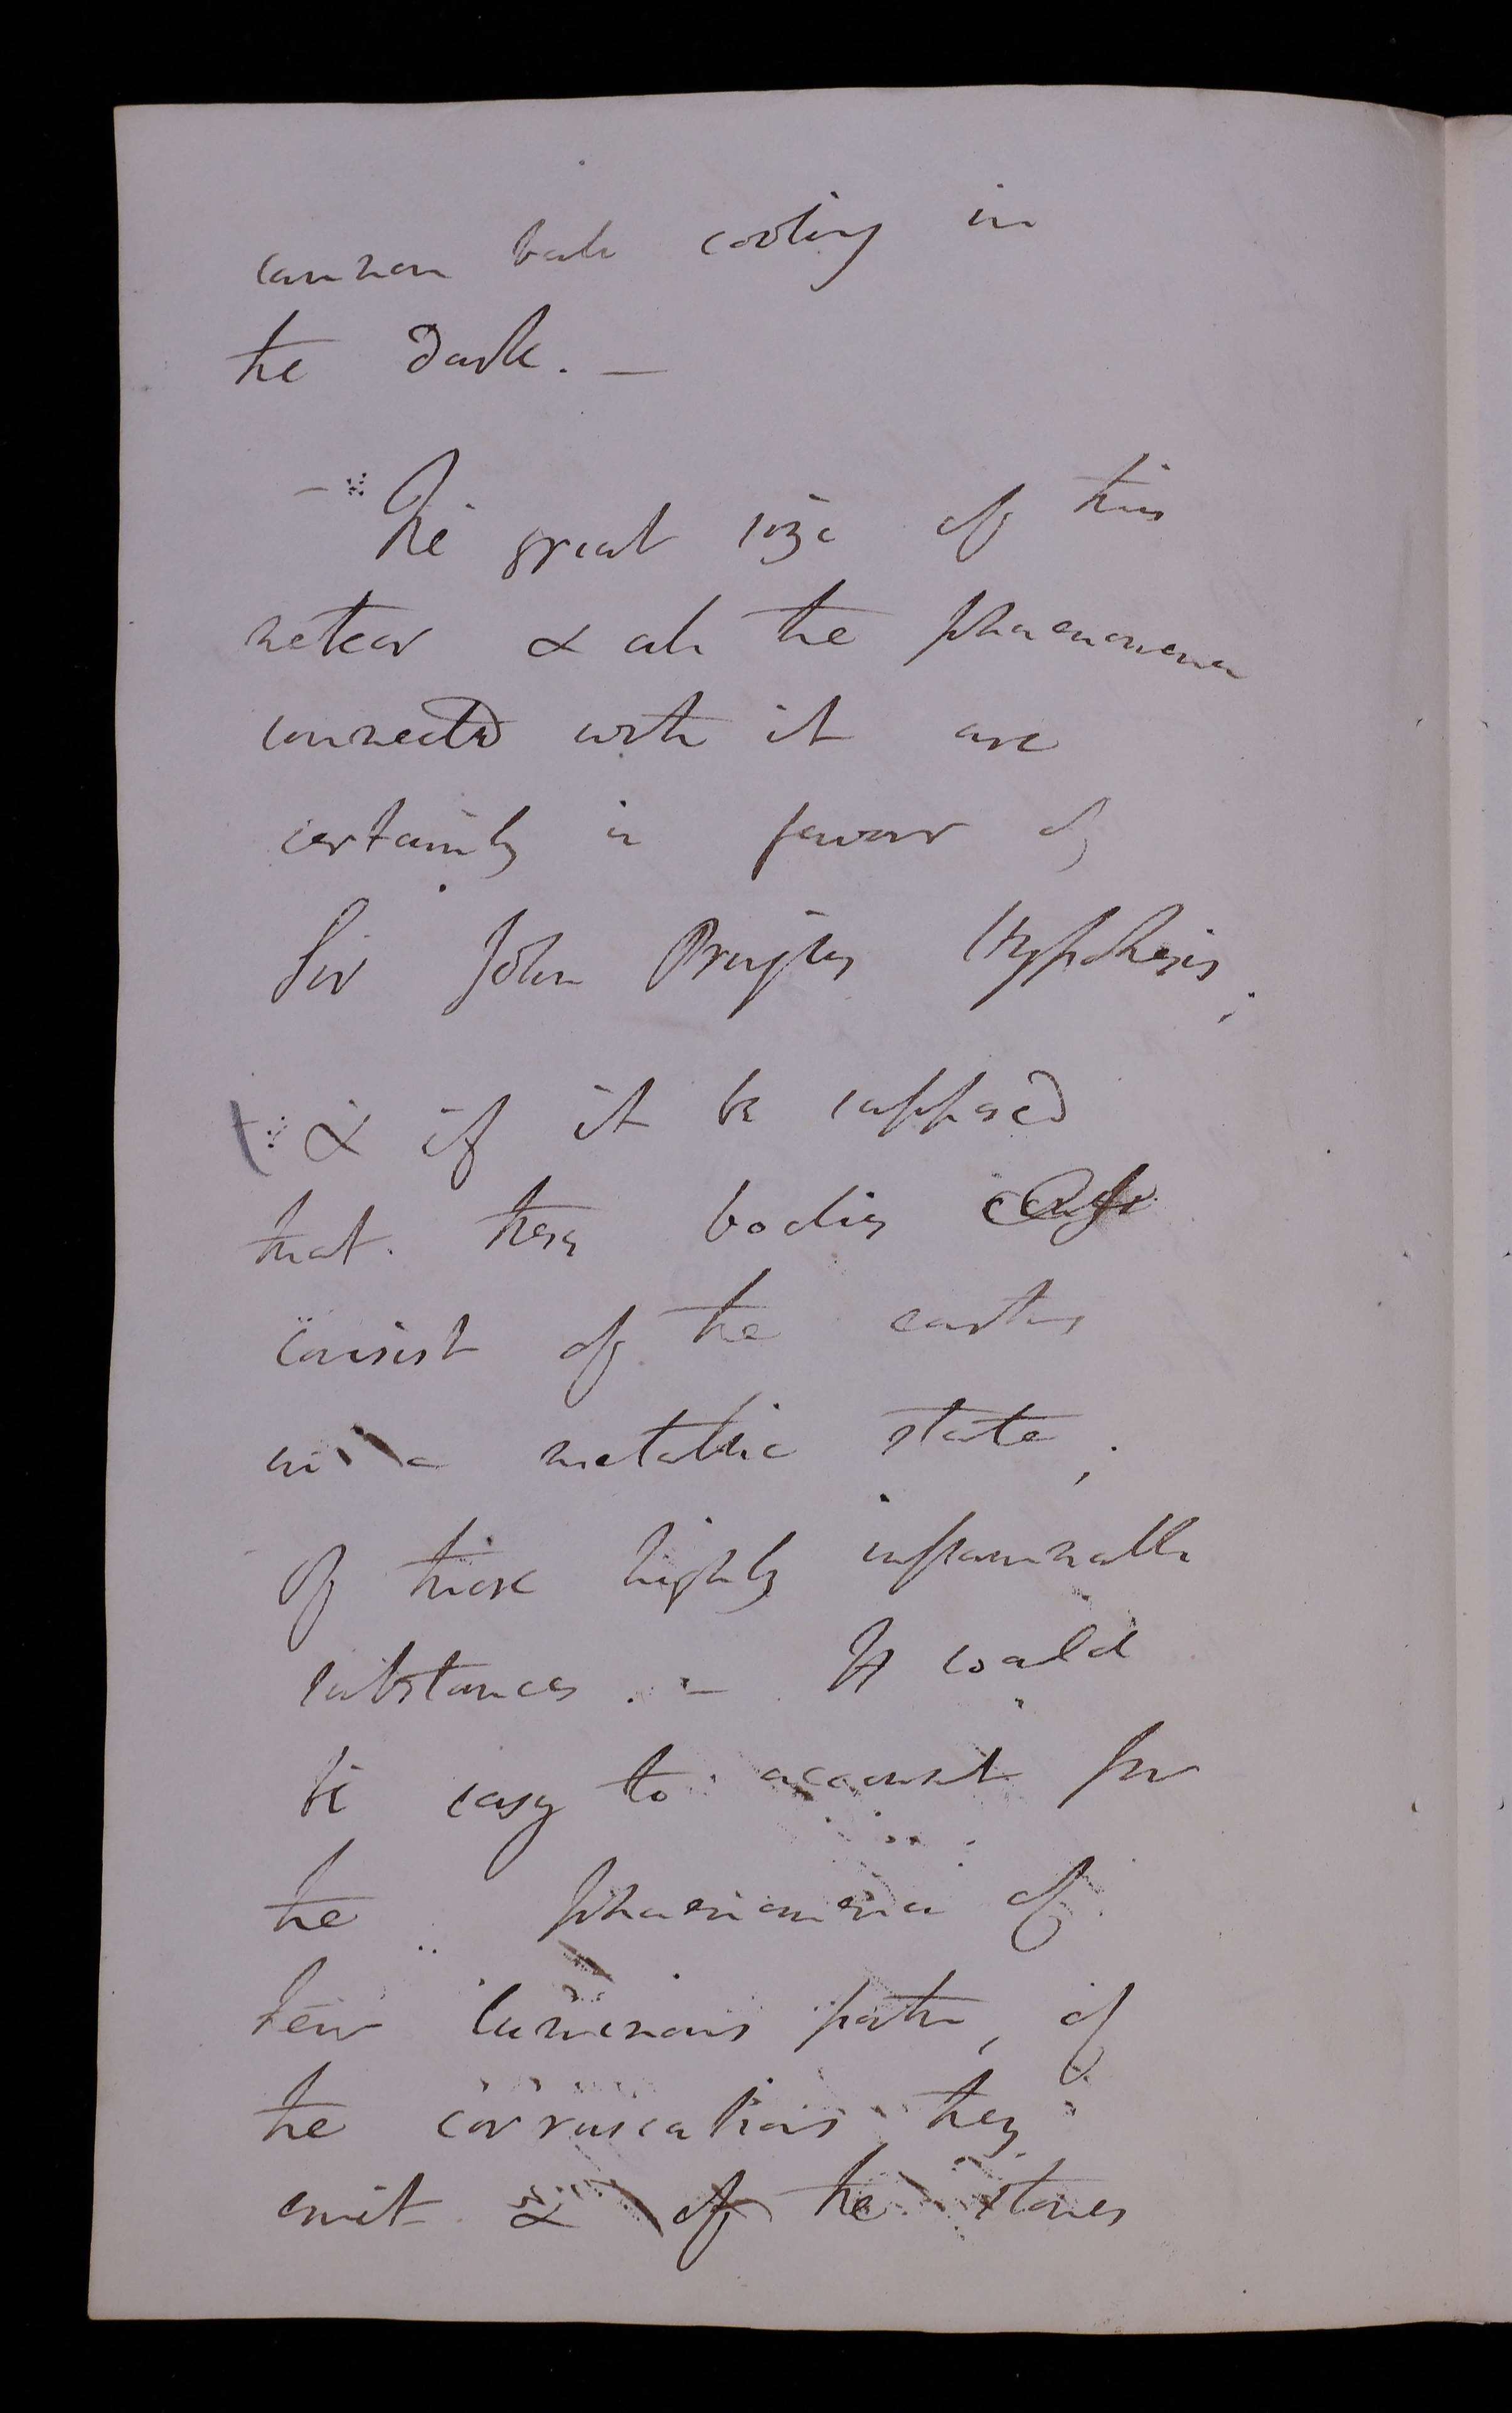 cannon balls cooling in
the dark. —
— The great size of this
meteor & all the phaenomena
connected with it are
certainly in favour of
Sir John Pringles Hypothesis;
& if it be supposed
that these bodies
consist of the earths
in a metallic state;
of those highly inflammable
substances. — It would
be easy to account for
the phaenomena of
their luminous path, of
the corruscations they
emit & of the stones